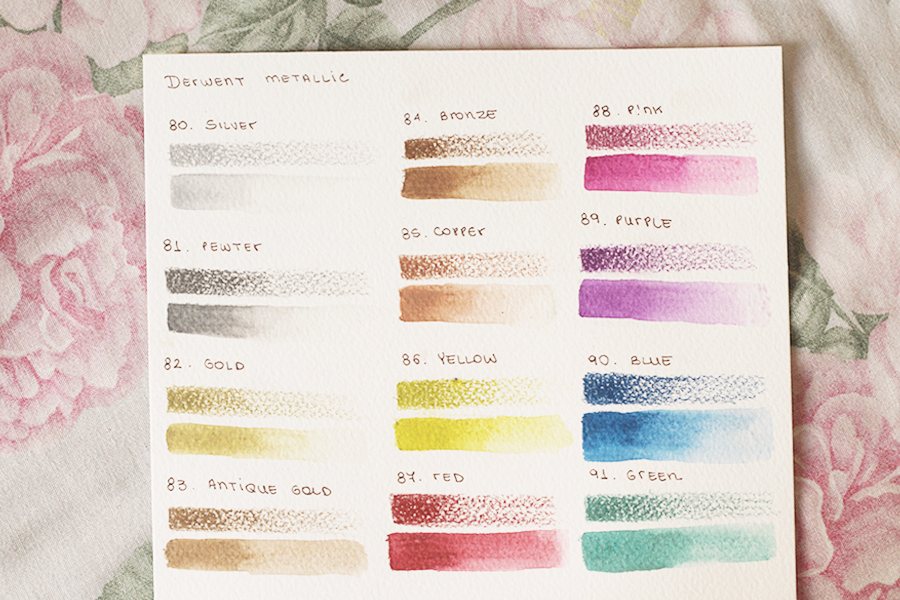 Derwent metallic
80. Silver
81. Pewter
82. Gold
83. Antique Gold
84. Bronze
85. Copper
86. Yellow
87. Red
88. Pink
89. Purple
90. Blue
91. Green